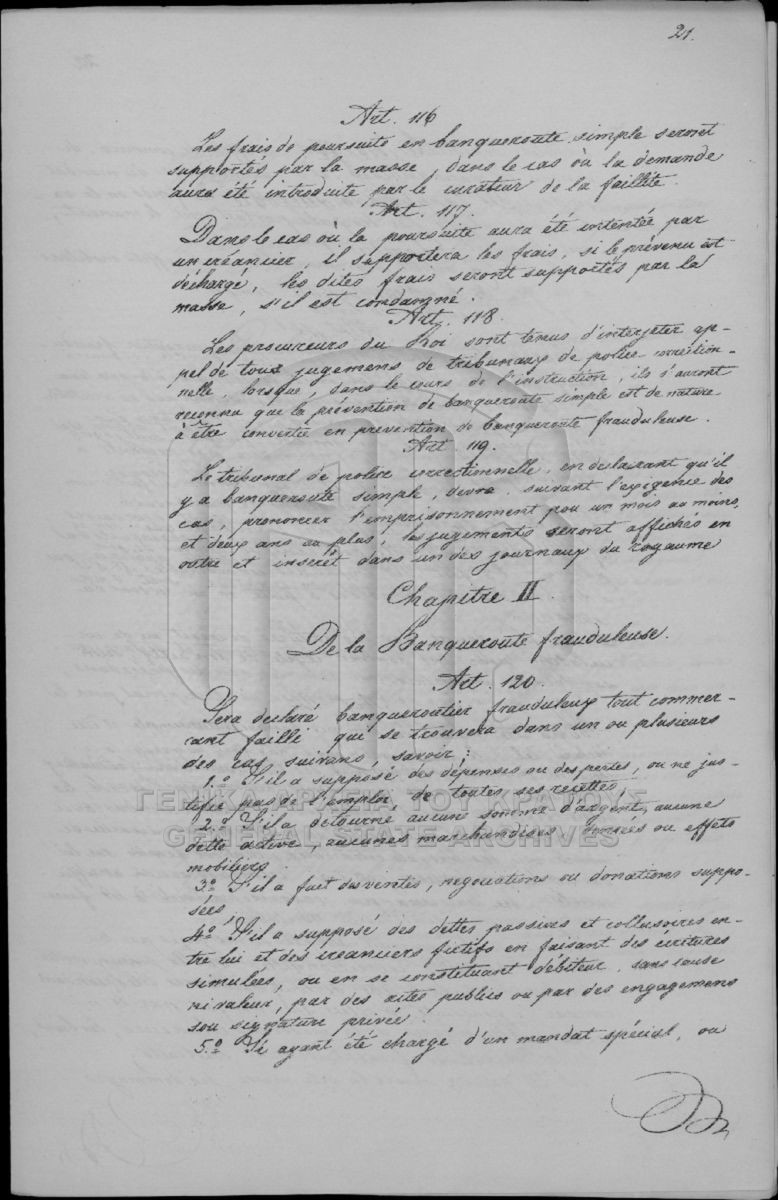 21.
Art. 116
Les frais de poursuite en banqueroute simple seront
supportés par la masse, dans le cas où la demande
aura été introduite par le curateur de la faillite.
Art. 117.
Dans le cas où la poursuite aura été intentée par
un créancier, il supportera les frais, si le prévenu est
déchargé, les dites frais seront supportés par la
masse, s'il est condamné.
Art. 118.
Les procureurs du Roi sont tenus d'interjeter ap-
pel de tous jugemens de tribunaux de police correction-
nelle, lorsque, dans le cours de l'instruction, ils auront
reconnu que la prévention de banqueroute simple est de nature
à être convertie en prevention de banqueroute frauduleuse.
Art. 119.
Le tribunal de police correctionnelle, en declarant qu'il
y a banqueroute simple, devra, suivant l'exigence des
cas, prononcer l'emprisonnement pou un mois au moins,
et deux ans au plus; les jugements seront affichés en
outre et inserét dans un des journaux du royaume
Chapitre II.
De la Banqueroute frauduleuse.
Art. 120.
Sera declaré banqueroutier frauduleux tout commer-
cant failli que se trouvera dans un ou plusieurs
des cas suivans, savoir:
1.º S'il a supposé des dépenses ou des pertes, ou ne jus-
tifie pas de l'emploi de toutes ses recettes,
ΓΕΝΙΚΑ ΑΡΧΕΙΑ ΤΟΥ ΚΡΑΤΟΥΣ
2.º S'il a detourné aucune somme d'argent, aucune
GENERAL STATE ARCHIVES
dette active, aucunes marchandises, denrées ou effets
mobiliers.
3.º S'il a fait des ventes, negociations ou donations suppo-
sées,
4.º S'il a supposé des dettes passives et collusoires en-
tre lui et des creanciers fictifs en faisant des ecritures
simulées, ou en se constituant débiteur, sans cause
ni valeur, par des actes publics ou par des engagemens
sou signature privée.
5.º Si ayant été chargé d'un mandat spécial, ou